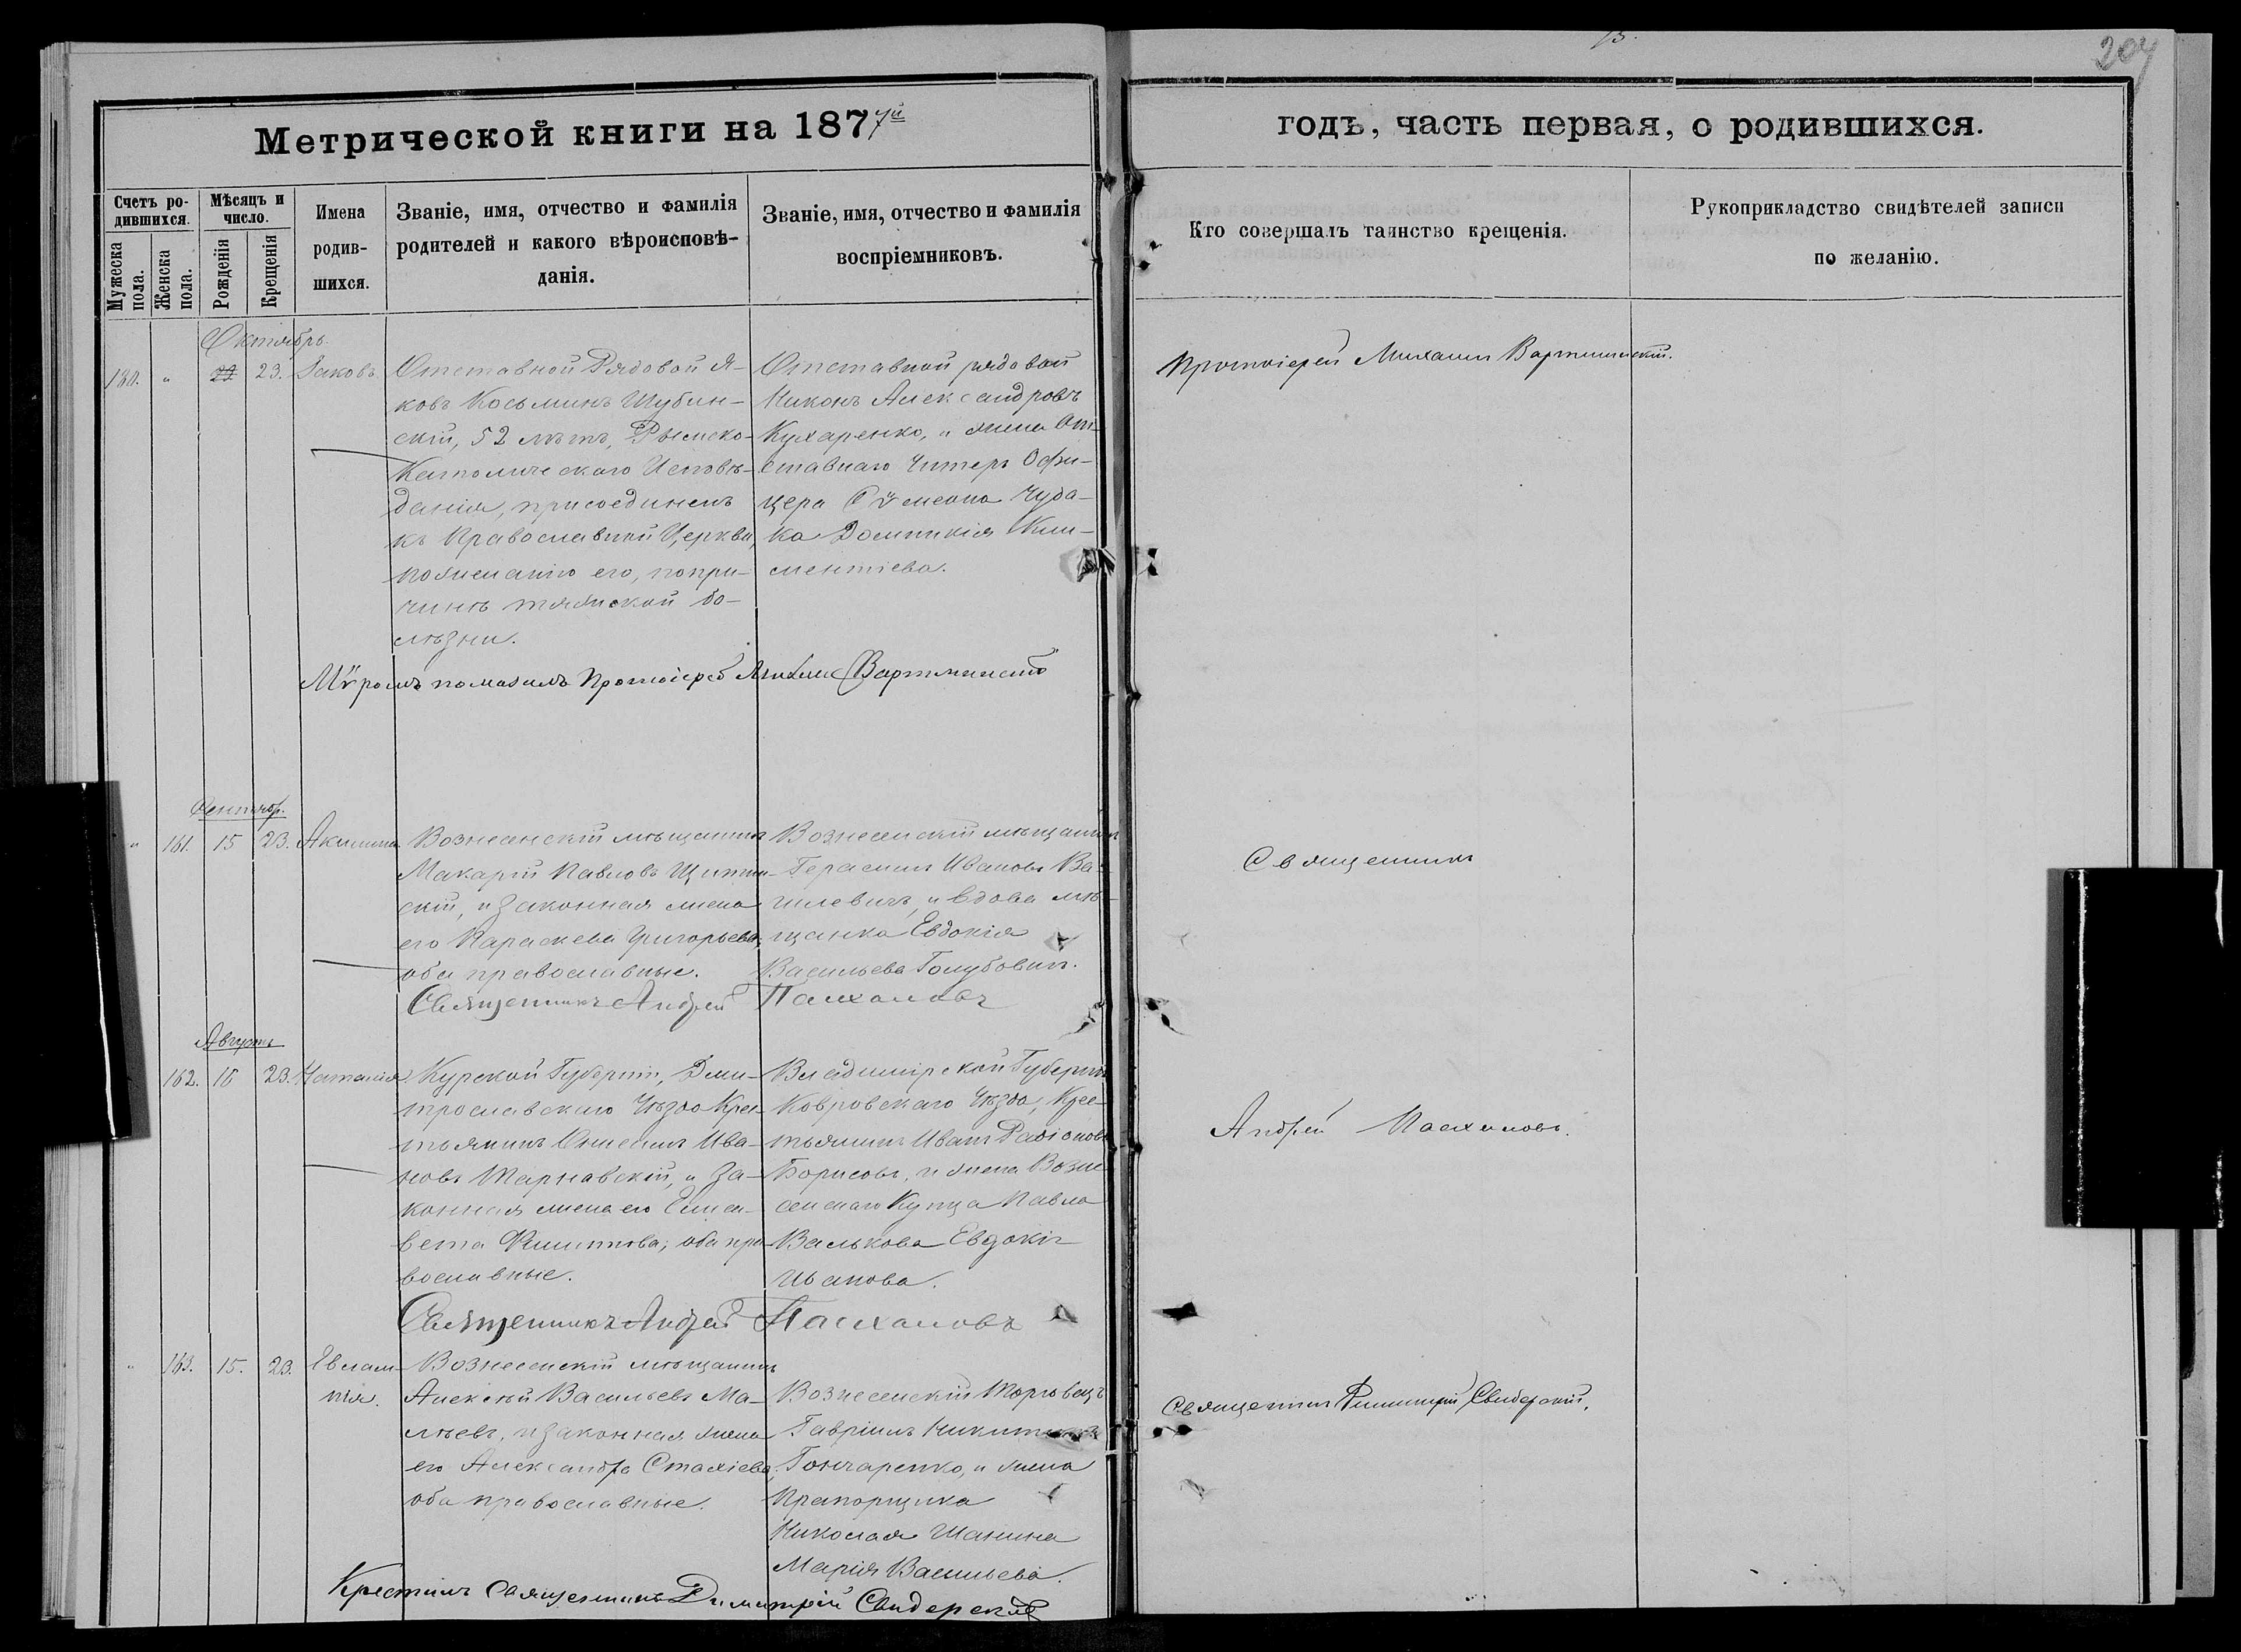 204
Метрической книги на 1877й
годъ, часть первая, о родившихся.
Счетъ родившихся.
Мужеска пола.
Женска пола.
Мѣсяцъ и число.
Рожденія
Крещенія
Имена родившихся.
Званіе, имя, отчество и фамилія
родителей и какого вѣроисповѣ-
данія.
Званіе, имя, отчество и фамилія
воспріемниковъ.
Кто совершалъ таинство крещенія.
Рукоприкладство свидѣтелей записи
по желанію.
Октябрь.
130. " 23. Іаковъ
Отставной Рядовой Я-
ковъ Косьминъ Шубин-
скій, 52 лѣтъ, Римско-
Католическаго Исповѣ-
данія, присоединенъ
къ Православной Церкви,
по желанію его, по при-
чинѣ тяжской бо-
лѣзни.
Отставной рядовой
Никонъ Александровъ
Кухаренко, и жена От-
ставнаго Унтеръ Офи-
цера Сѵмеона Чуба-
ка Домникія Кли-
ментіева.
Протоіерей Михаилъ Вартминскій.
Мѵромъ помазалъ Протоіерей Михаилъ Вартминскій
Сентябр.
" 161. 15 23. Акилина.
Вознесенскій мѣщанинъ
Макарій Павловъ Щитин-
скій, и законная жена
его Параскева Григорьева,
оба православные.
Вознесенскій мѣщанинъ
Герасимъ Ивановъ Ва-
шлевичъ, и вдова мѣ-
щанка Евдокія
Васильева Голубович.
Священникъ
Священникъ Андрей Пасхаловъ
Августъ
162. 18 23. Наталія
Курской Губерніи, Дми-
трославскаго Уѣзда Крес-
тьянинъ Онисимъ Ива-
новъ Тарнавскій, и за-
конная жена его Елиса-
вета Филиппова; оба пра-
вославные.
Владимірской Губерніи
Ковровскаго Уѣзда, Крес-
тьянинъ Иванъ Радіоновъ
Борисовъ, и жена Возне-
сенскаго Купца Павла
Валькова Евдокія
Иванова.
Андрей Пасхаловъ.
Священникъ Андрей Пасхаловъ
" 163. 15. 23. Евлам-
пія.
Вознесенскій мѣщанинъ
Алексѣй Васильевъ Ма-
лѣевъ, и законная жена
его Александра Стахіева;
оба православные.
Вознесенскій Торговецъ
Гавріилъ Никитинъ
Гончаренко, и жена
Прапорщика
Николая Шанина
Марія Васильева.
Священникъ Димитрій Свидерскій.
Крестилъ Священникъ Димитрій Свидерскій